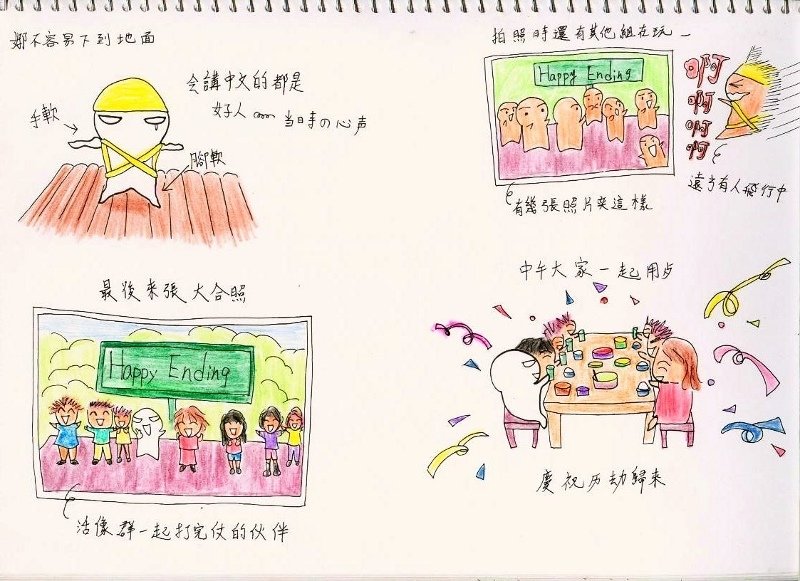 娜不容易下到地面
會講中文的都是
好人
當日時の心声
手軟
腳軟
拍照時還有其他組在玩
Happy Ending
啊
啊
啊
啊
遠方有人飛行中
有幾張照片夾這樣
最後來張大合照
Happy Ending
活像群一起打完仗的伙伴
中午大家一起用歺
慶祝历劫歸來